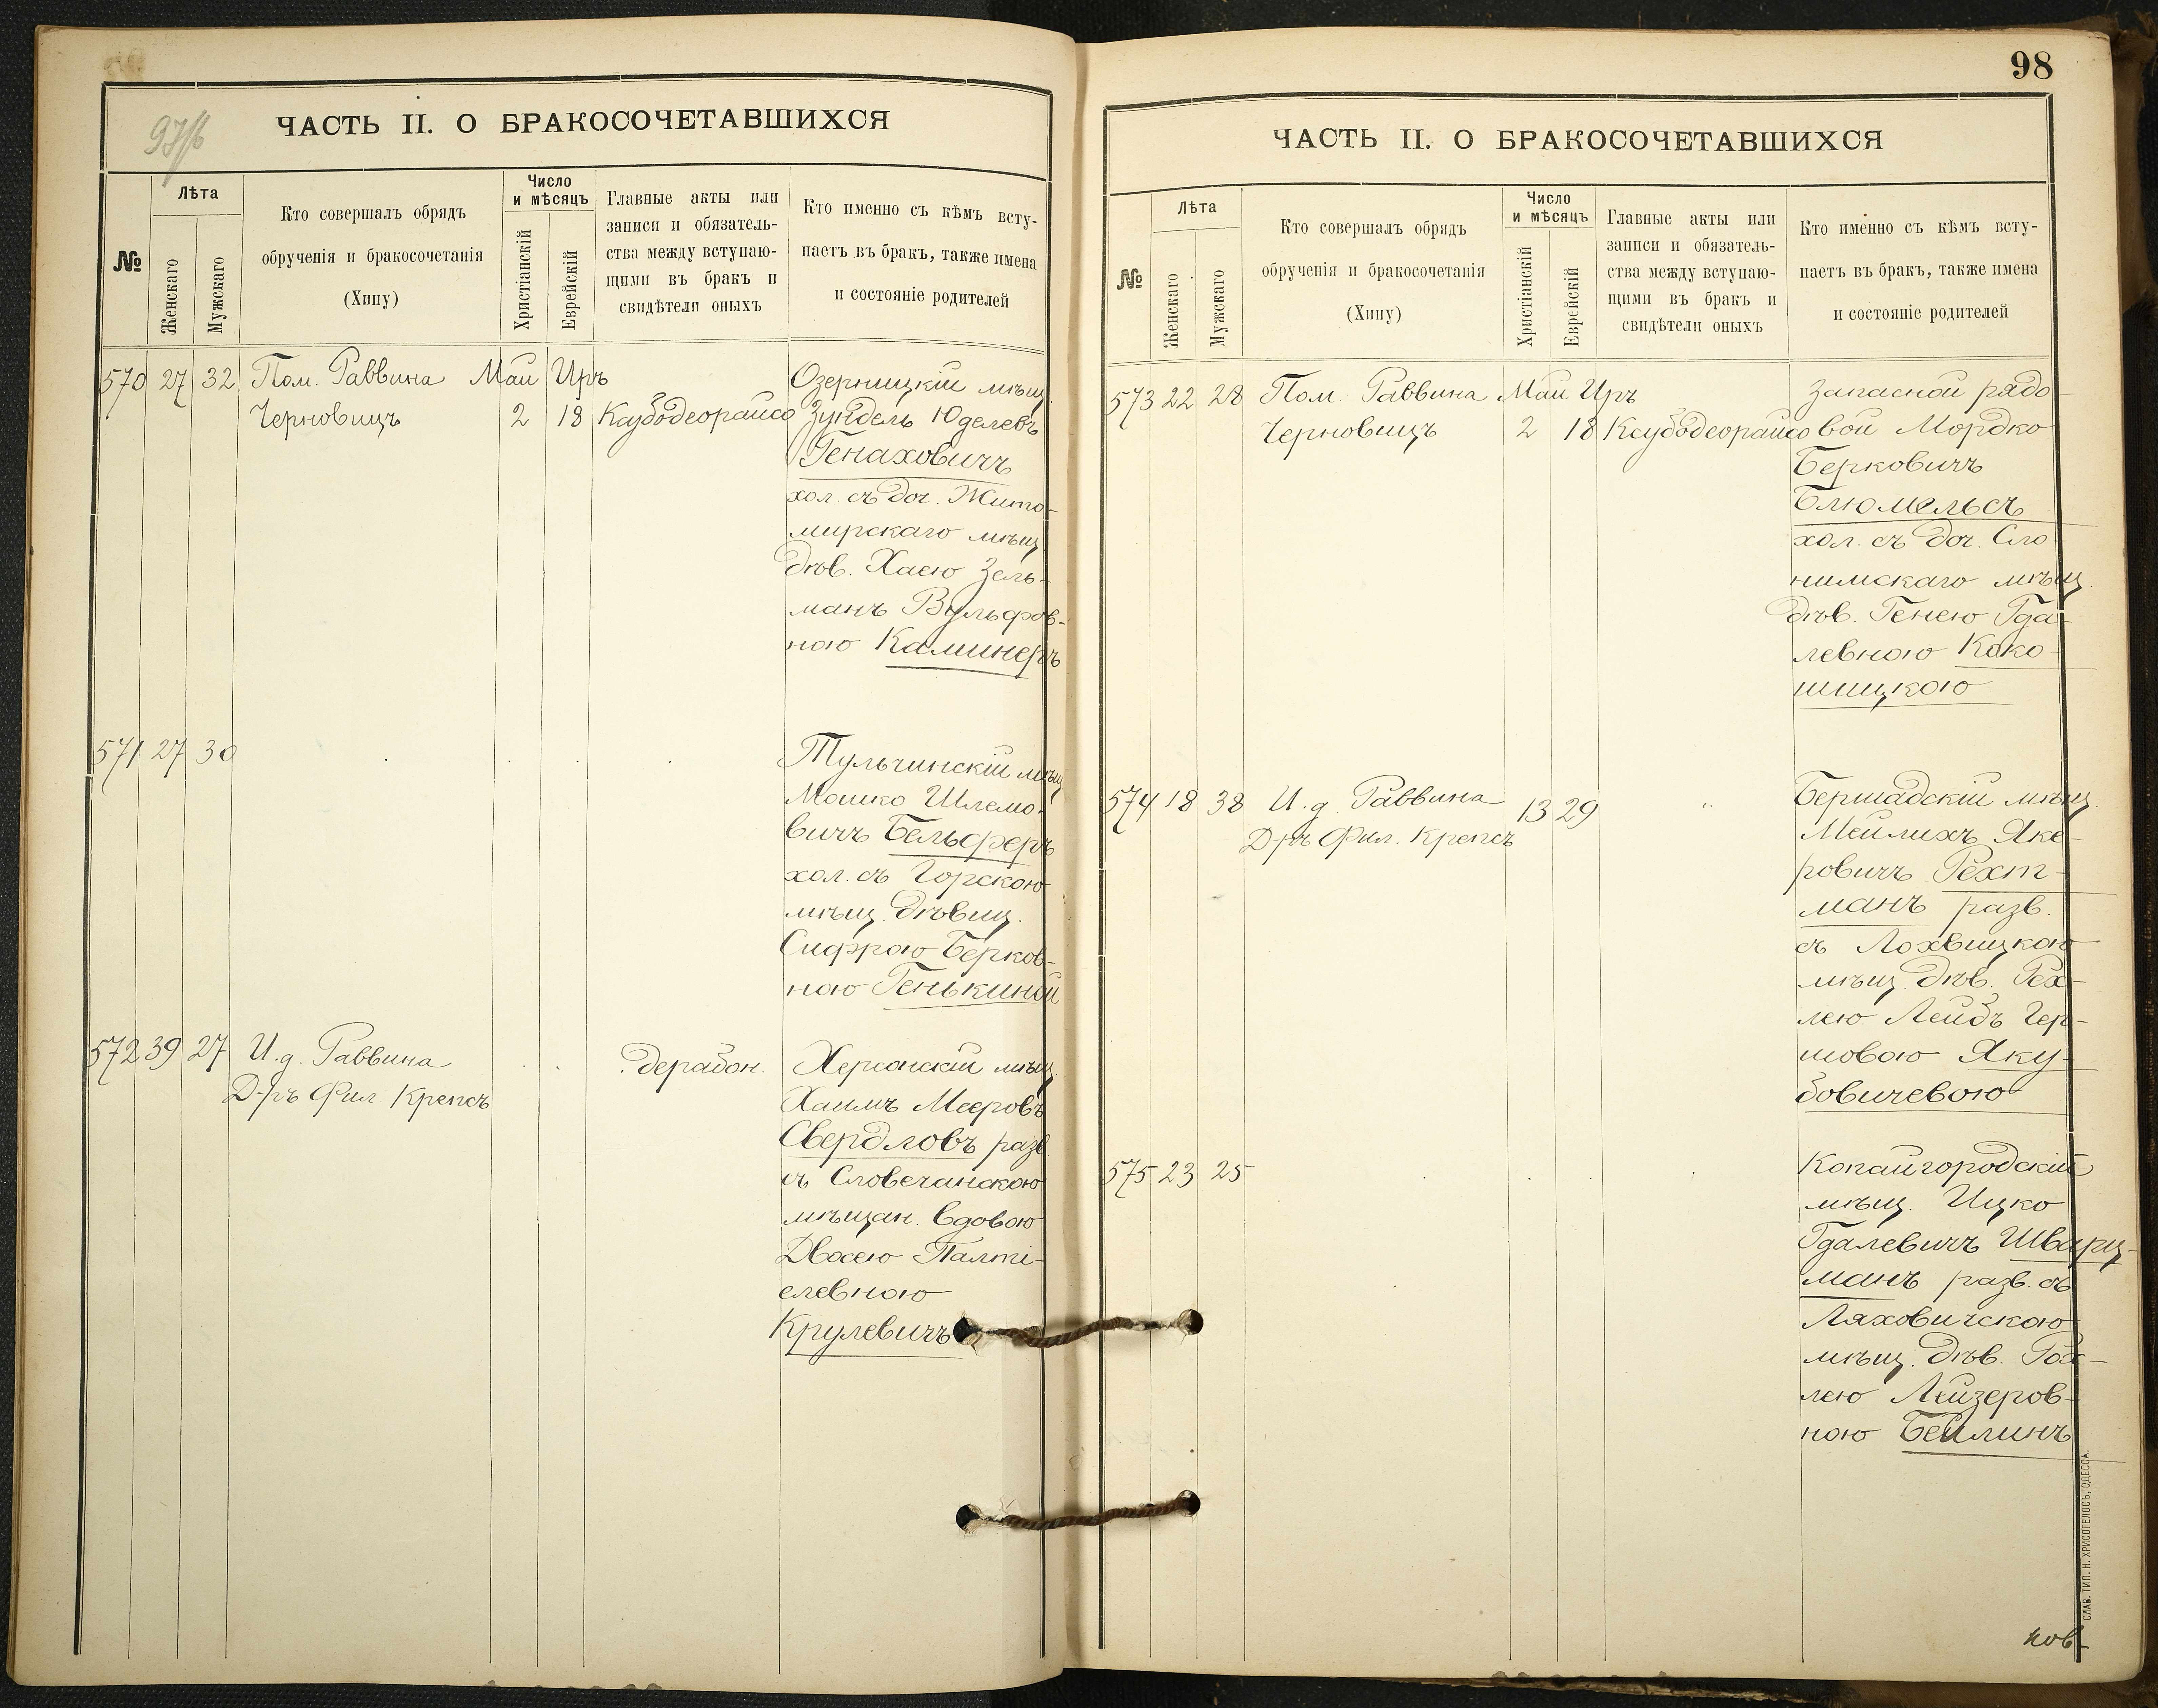 97/б
ЧАСТЬ II. О БРАКОСОЧЕТАВШИХСЯ
№
Лѣта
Женскаго
Мужскаго
Кто совершалъ обрядъ
обрученія и бракосочетанія
(Хипу)
Число
и мѣсяцъ
Христіанскій
Еврейскій
Главные акты или
записи и обязатель-
ства между вступаю-
щими въ бракъ и
свидѣтели оныхъ
Кто именно съ кѣмъ всту-
паетъ въ бракъ, также имена
и состояніе родителей
570 27 32 Пом. Раввина Май Иръ Озерницкій мѣщ.
Черновицъ 2 18 Каубодеорайсо Зундель Юделевъ
Генаховичъ
хол. съ доч. Жито-
мирскаго мѣщ.
дѣв. Хаею Зель-
манъ Вульфов-
ною Калинеръ
571 27 30 Тульчинскій мѣщ
Мошко Шлемо-
вичъ Бельферъ
хол. съ Горскою
мѣщ. дѣвиц.
Сифрою Берков-
ною Генькиной
572 39 27 И. д. Раввина дерабон. Херсонскій мѣщ.
Д-ръ Фил. Крепсъ Хаимъ Мееровъ
Свердловъ разв
съ Словечанскою
мѣщан. вдовою
Двосею Палті-
елевною
Крулевичъ
98
ЧАСТЬ II. О БРАКОСОЧЕТАВШИХСЯ
№
Лѣта
Женскаго
Мужскаго
Кто совершалъ обрядъ
обрученія и бракосочетанія
(Хипу)
Число
и мѣсяцъ
Христіанскій
Еврейскій
Главные акты или
записи и обязатель-
ства между вступаю-
щими въ бракъ и
свидѣтели оныхъ
Кто именно съ кѣмъ всту-
паетъ въ бракъ, также имена
и состояніе родителей
573 22 28 Пом. Раввина Май Иръ Запасной рядо-
Черновицъ 2 18 Каубодеорайсо вой Мордко
Берковичъ
Блюмельсъ
хол. съ доч. Сло-
нимскаго мѣщ.
дѣв. Генею Гда-
левною Коко-
шицкою
574 18 38 И. д. Раввина 13 29 " Бершадскій мѣщ.
Д-ръ Фил. Крепсъ Мейлихъ Яке-
ровичъ Рехт-
манъ разв.
съ Лохвицкою
мѣщ. дѣв. Рех-
лею Лейбъ Гер-
шовою Яку-
бовичевою
575 23 25 Копайгородскій
мѣщ. Ицко
Гдалевичъ Шварц-
манъ разв. съ
Ляховичскою
мѣщ. дѣв. Рох-
лею Лейзеров-
ною Бейлинъ
СЛАВ. ТИП. Н. ХРИСОГЕЛОСЪ, ОДЕССА.